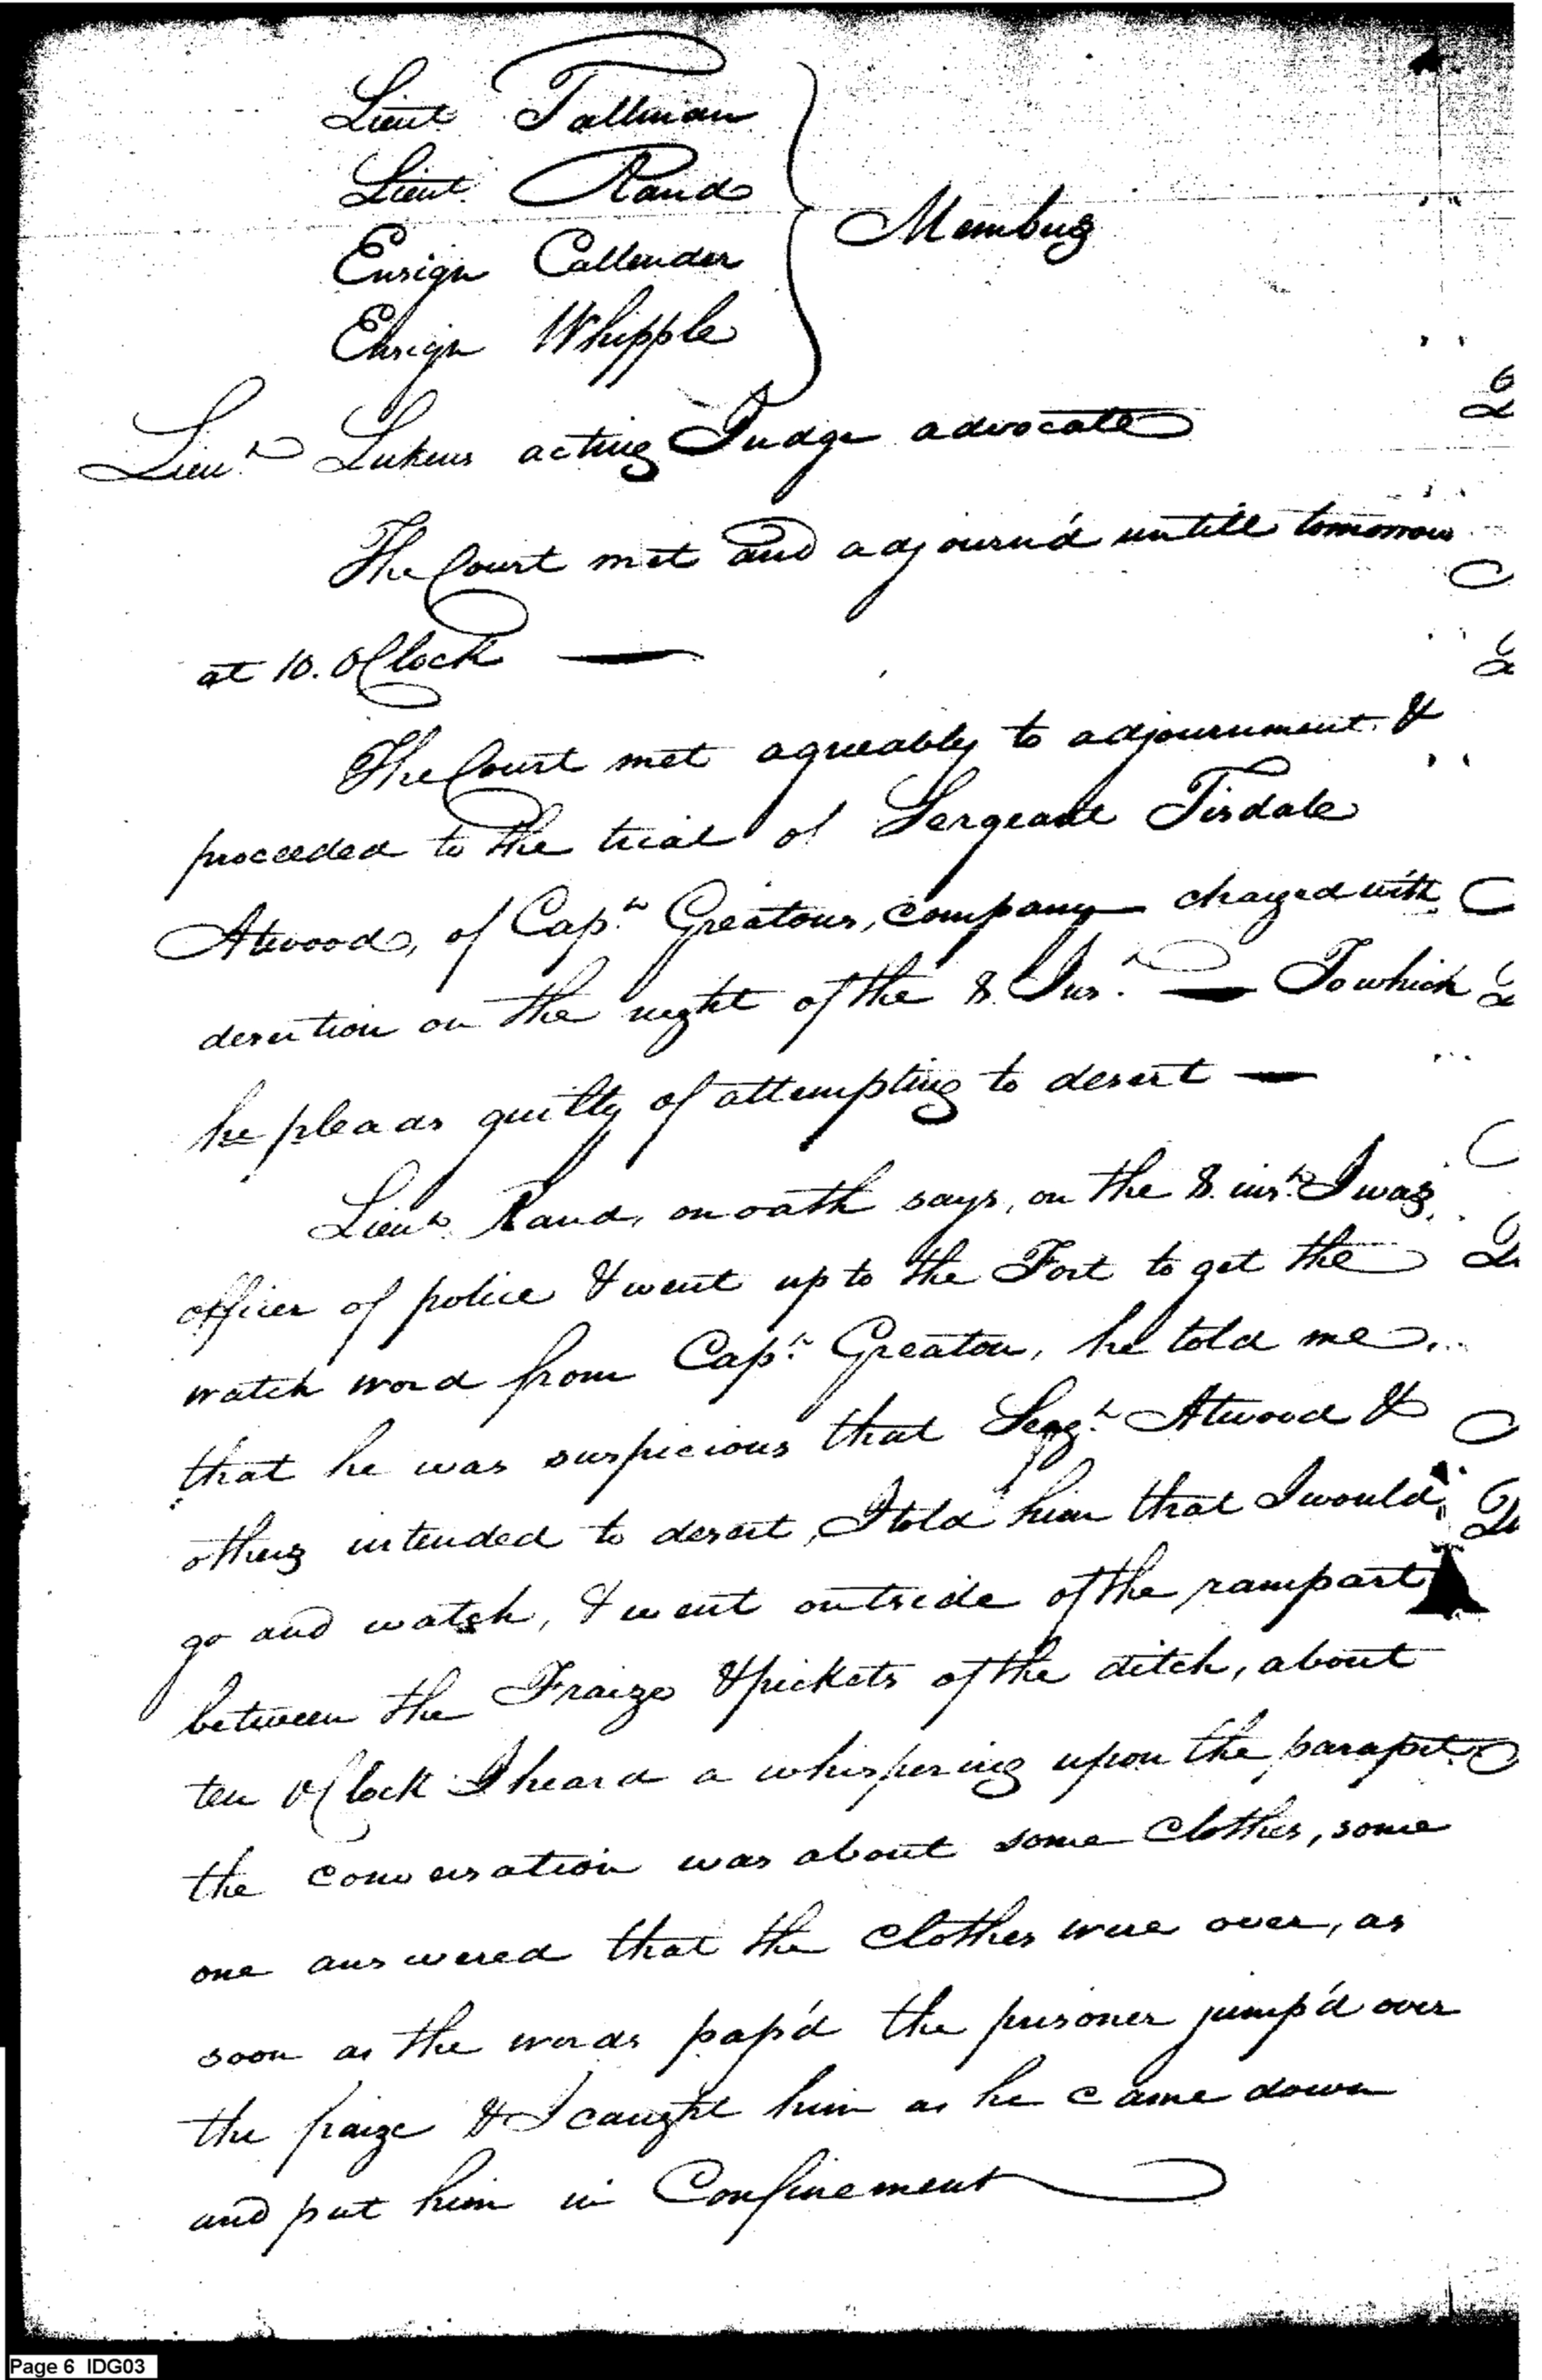 Lieut. Tallman
Lieut. Rand
Members
Ensign Callender
Ensign Whipple
Lieut. Lukens acting Judge advocate
The Court met and adjourn'd untill tomorrow
at 10. OClock —
The Court met agreeably to adjournment &
proceeded to the trial of Sergeant Tisdale
Atwood, of Capt. Greatons, company charged with
desertion on the night of the 8. Inst. — To which
he pleads guilty of attempting to desert —
Lieut. Rand, on oath says, on the 8. inst. I was
officer of police & went up to the Fort to get the
watch word from Capt. Greaton, he told me
that he was suspicious that Sergt. Atwood &
others intended to desert, I told him that I would
go and watch, & went outside of the rampart
between the Fraize & pickets of the ditch, about
ten OClock I heard a whispering upon the parapet
the conversation was about some clothes, some
one answered that the clothes were over, as
soon as the words pass'd the prisoner jump'd over
the fraize & I caught him as he came down
and put him in Confinement
Page 6 IDG03